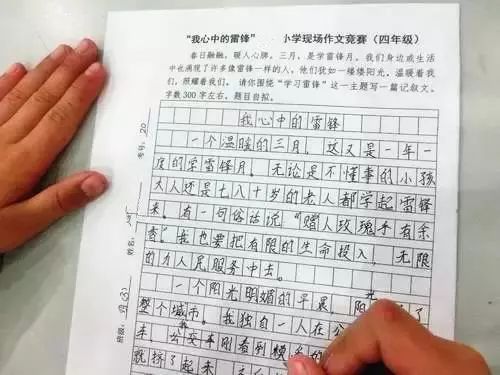 “我心中的雷锋”　小学现场作文竞赛（四年级）
春日融融，暖人心脾。三月，是学雷锋月。我们身边或生活
中也涌现了许多像雷锋一样的人，他们犹如一缕缕阳光，温暖着我
们，照耀着我们。请你围绕“学习雷锋”这一主题写一篇记叙文。
字数300字左右，题目自拟。
我心中的雷锋
一个温暖的三月，这又是一年一
度的学雷锋月。无论是不懂事的小孩
大人还是七八十岁的老人都学起雷锋
来。有一句俗话说“赠人玫瑰手有余
香”我也要把有限的生命投入，无限
的为人民服务中去。
一个阳光明媚的早晨，阳光 了
整个城市。我独自一人在公
车 公交车刚看到
就挤了起来
考号：20
姓名：
班级：四(3)